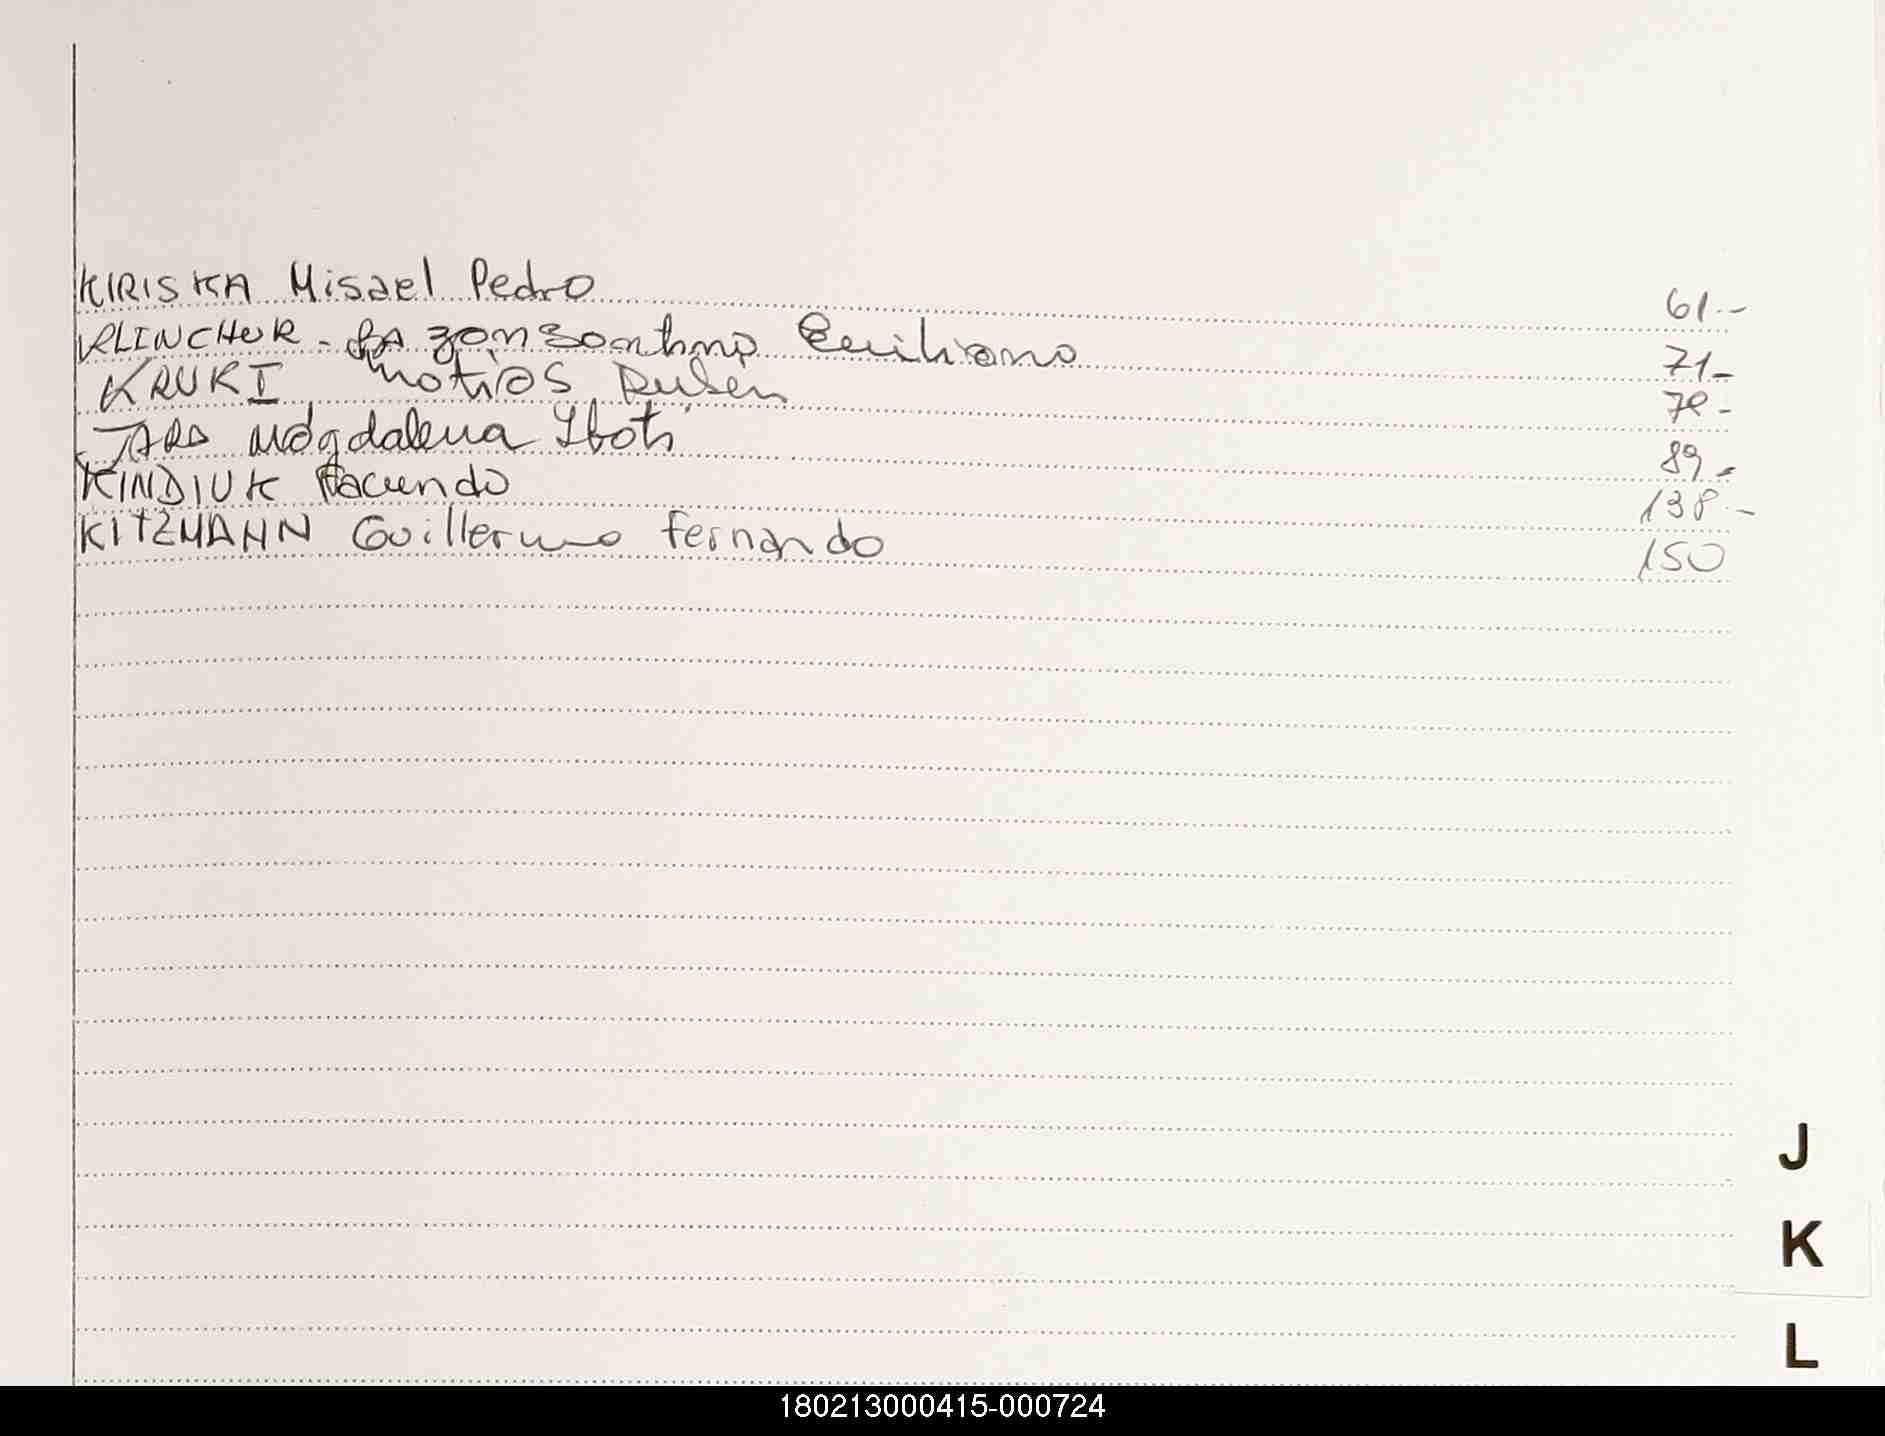 KIRISKA Misael Pedro 61.-
KLINCHUK - Santino Emiliano 71-
KRUKI Matias Ruben -
JARA Magdalena Iboti 89-
KINDIUK Facundo 138.-
KITZMANN Guillermo Fernando 150
J
K
L
180213000415-000724